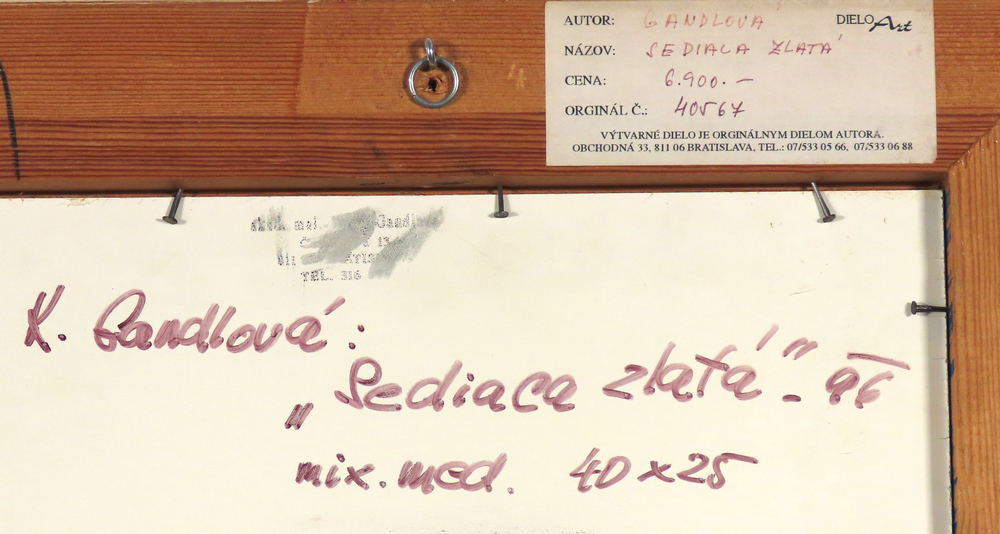 AUTOR: GANDLOVÁ DIELO Art
NÁZOV: SEDIACA ZLATÁ
CENA: 6.900.-
ORGINÁL Č.: 40567
VÝTVARNÉ DIELO JE ORGINÁLNYM DIELOM AUTORA.
OBCHODNÁ 33, 811 06 BRATISLAVA, TEL.: 07/533 05 66, 07/533 06 88
TEL. 316
K. Gandlová:
„Sediaca zlatá" - 96
mix. med. 40 x 25